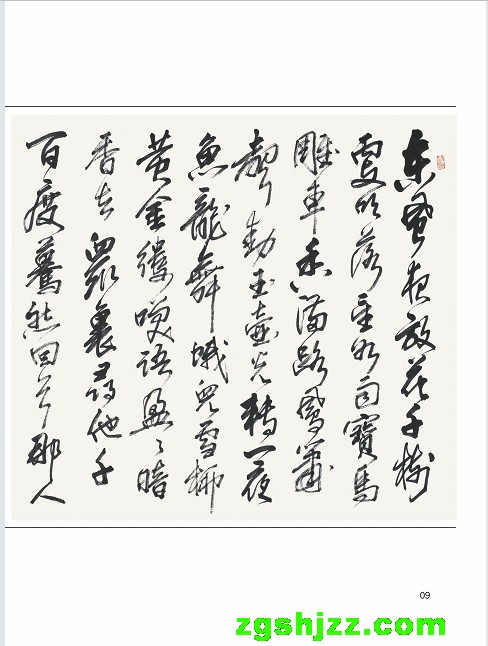 東風夜放花千樹
更吹落星如雨寶馬
雕車香滿路鳳簫
聲動玉壺光轉一夜
魚龍舞蛾兒雪柳
黄金縷笑語盈〻暗
香去眾裏尋他千
百度驀然回首那人
09
zgshjzz.com